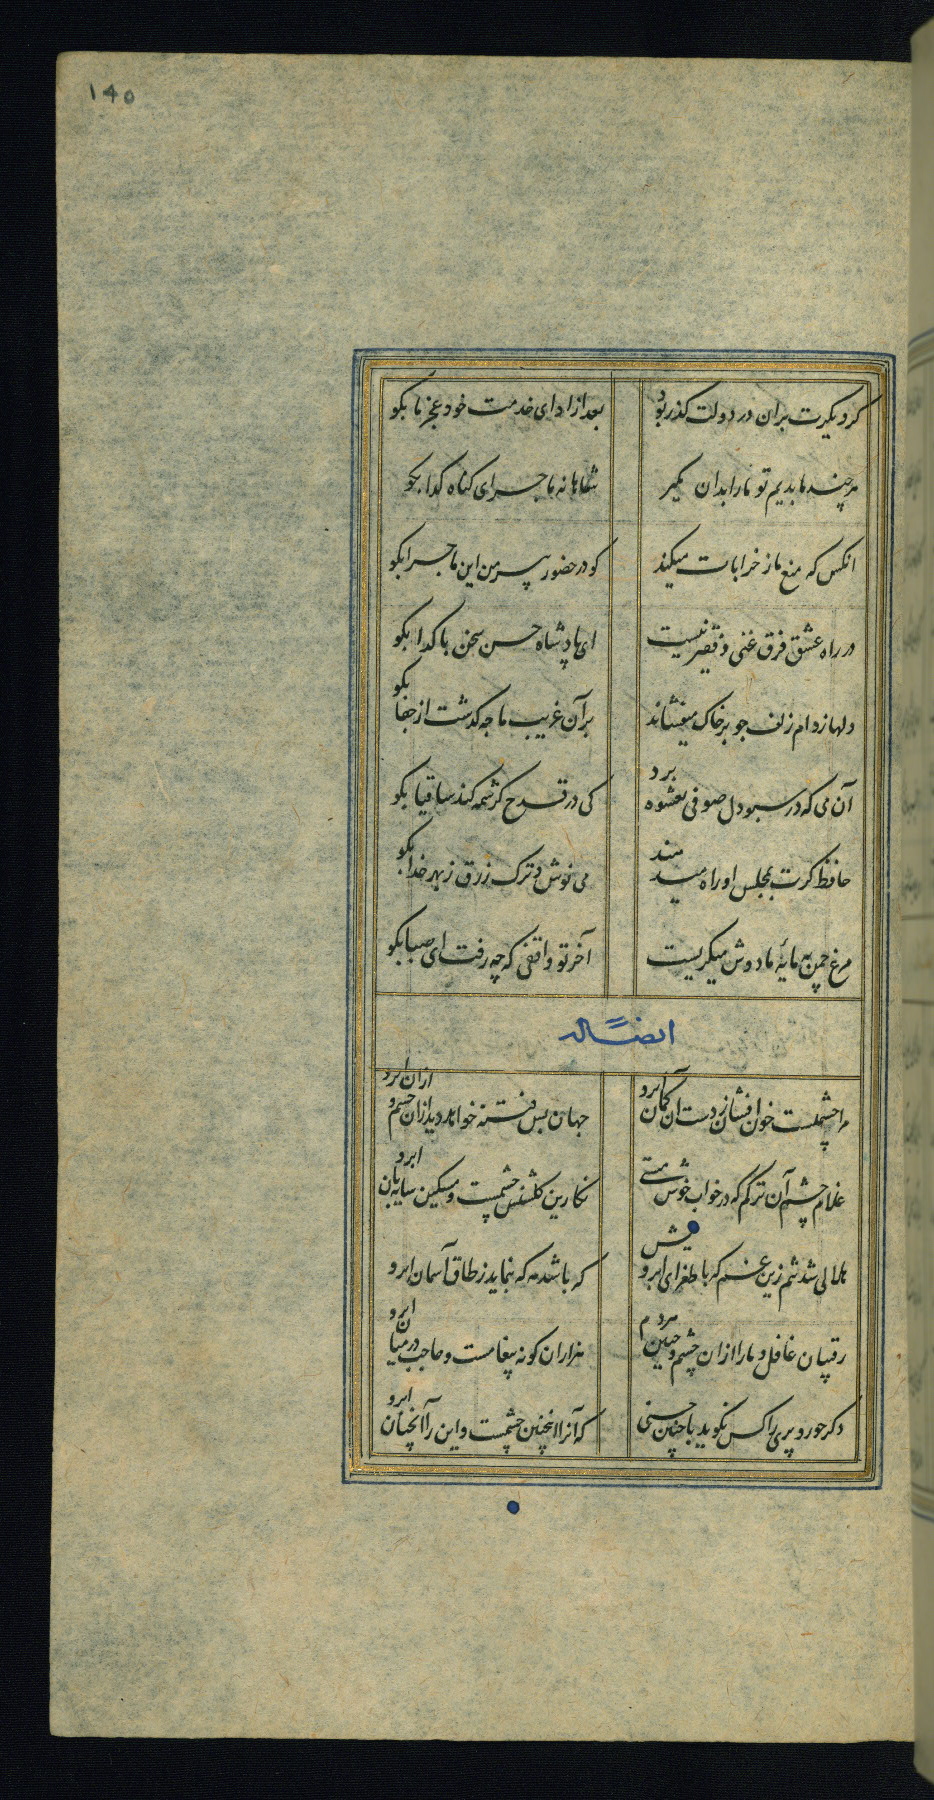 ۱۴۵
کر دیکرت بران در دولت کذر بود بعد از ادای خدمت خود عجز ما بکو
هر چند ما بدیم تو مارا بدان مکیر شاهانه ماجرای کناه کدا بکو
انکس که منع ما ز خرابات میکند کو در حضور پیر من این ماجرا بکو
در راه عشق فرق غنی و فقیر نیست ای پادشاه حسن سخن با کدا بکو
دلها ز دام زلف جو بر خاک میفشاند بر آن غریب ما جه کدشت از جفا بکو
آن می که در سبو دل صوفی بعشوه برد کی در قدح کرشمه کند ساقیا بکو
حافظ کرت بمجلس او راه میدهند می نوش و ترک زرق ز بهر خدا بکو
مرغ چمن به مایهٔ ما دوش میکریست آخر تو واقفی که چه رفت ای صبا بکو
ایضاً له
مرا چشمیست خون افشان ز دست آن کمان ابرو جهان بس فتنه خواهد دید از ان چشم و از ان ابرو
غلام چشم آن ترکم که در خواب خوش مستی نکارین کلشنش چشمیست و مسکین سایه بان ابرو
هلالی شد تنم زین غم که با طغرای ابرویش که باشد مه که بنماید ز طاق آسمان ابرو
رقیبان غافل و ما را از ان چشم و جبین هر دم هزاران کونه پیغامست و حاجب در میان ابرو
دکر حور و پری را کس نکوید با چنین حسنی که آنرا اینچنین چشمست و این را آنچنان ابرو